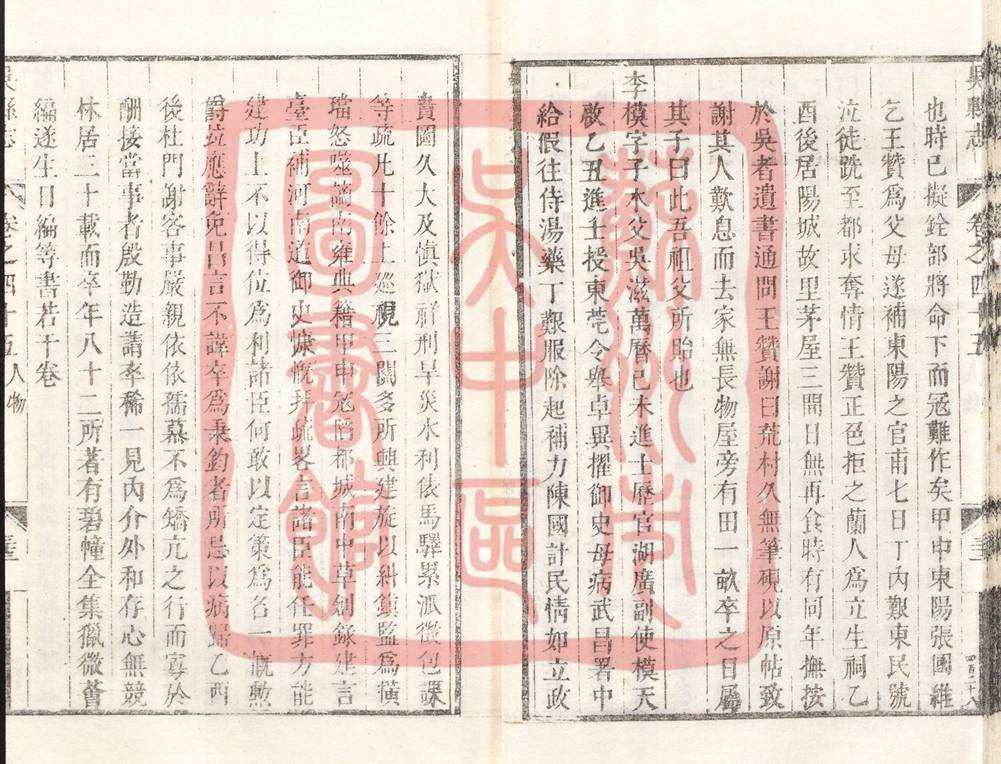 吳縣志
卷之四十五
三
四百二十八
也時已擬銓部將命下而冠難作矣甲申東陽張國維
乞王贊爲父母遂補東陽之官甫七日丁內艱東民號
泣徒跣至都求奪情王贊正色拒之蘭人爲立生祠乙
酉後居陽城故里茅屋三間日無再食時有同年撫按
於吳者遺書通問王贊謝曰荒村久無筆硯以原帖致
謝其人歎息而去家無長物屋旁有田一畝卒之日屬
其子曰此吾祖父所貽也
李模字子木父吳滋萬曆己未進士歷官湖廣副使模天
啟乙丑進士授東莞令舉卓異擢御史母病武昌署中
給假往侍湯藥丁艱服除起補力陳國計民情如立政
貴圖久大及慎獄祥刑旱災水利俵馬驛累派徵包課
等疏凡十餘上巡視三關多所興建旋以糾鎮監爲橫
璫怒噬謫南雍典籍甲申冦陷都城南中草創錄建言
臺臣補河南道御史慷慨拜疏畧言諸臣能任罪方能
建功上不以得位爲利諸臣何敢以定策爲名一槪勲
爵竝應辭免昌言不諱卒爲秉鈞者所忌以病歸乙酉
後杜門謝客事嚴親依依孺慕不爲矯亢之行而寡於
酬接當事者殷勤造請率稀一見內介外和存心無競
林居三十載而卒年八十二所著有碧幢全集獵微薈
編遂生日編等書若干卷
吳縣志
卷之四十五
人物
三
蘇州市
吳中區
圖書館